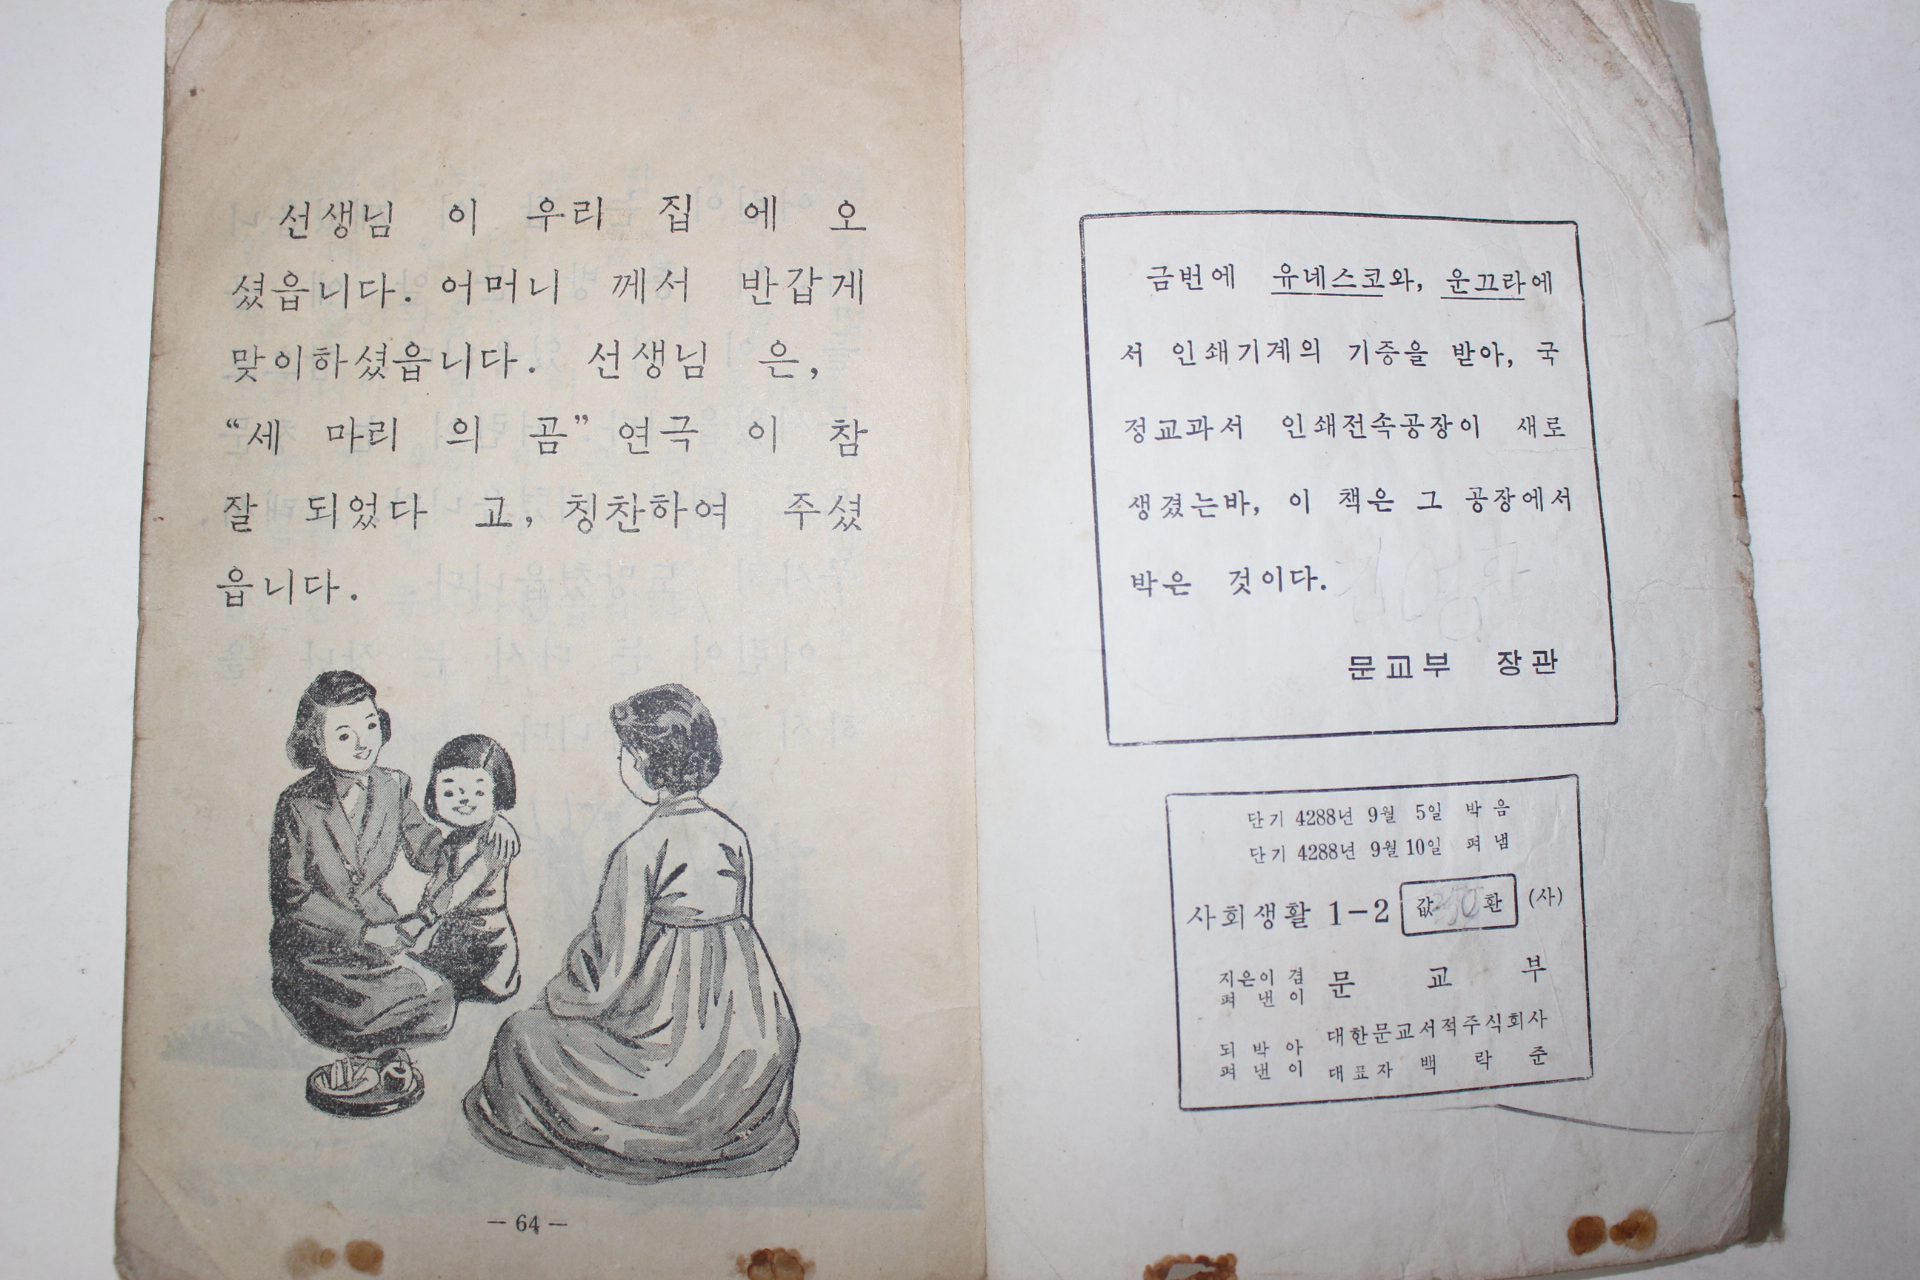 선생님 이 우리 집 에 오
셨읍니다. 어머니 께서 반갑게
맞이하셨읍니다. 선생님 은,
“세 마리 의 곰” 연극 이 참
잘 되었다 고, 칭찬하여 주셨
읍니다.
— 64 —
금번에 유네스코와, 운끄라에
서 인쇄기계의 기증을 받아, 국
정교과서 인쇄전속공장이 새로
생겼는바, 이 책은 그 공장에서
박은 것이다.
문교부 장관
단기 4288년 9월 5일 박음
단기 4288년 9월 10일 펴냄
사회생활 1-2 값 환 (사)
지은이 겸
펴 낸 이 문 교 부
되 박 아 대한문교서적주식회사
펴 낸 이 대표자 백 락 준